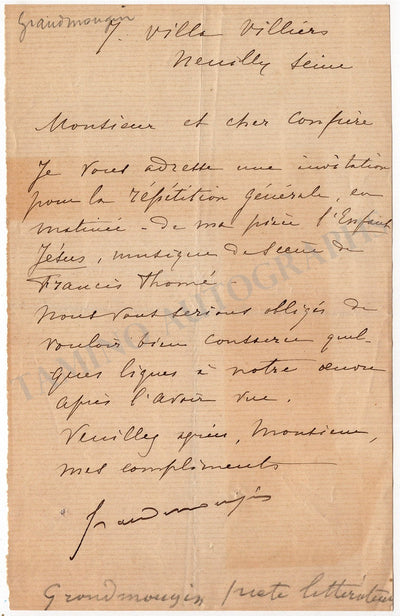 Grandmougin
7. Villa Villiers
Neuilly Seine
Monsieur et cher Confrère
Je vous adresse une invitation
pour la répétition générale, en
matinée - de ma pièce l'Enfant
Jésus, musique de scène de
Francis Thomé
Nous vous serions obligés de
vouloir bien consacrer quel-
ques lignes à notre œuvre
après l'avoir vue.
Veuillez agréer, Monsieur,
mes compliments
Grandmougin
Grandmougin, poète littérateur
TAMINO AUTOGRAPHS